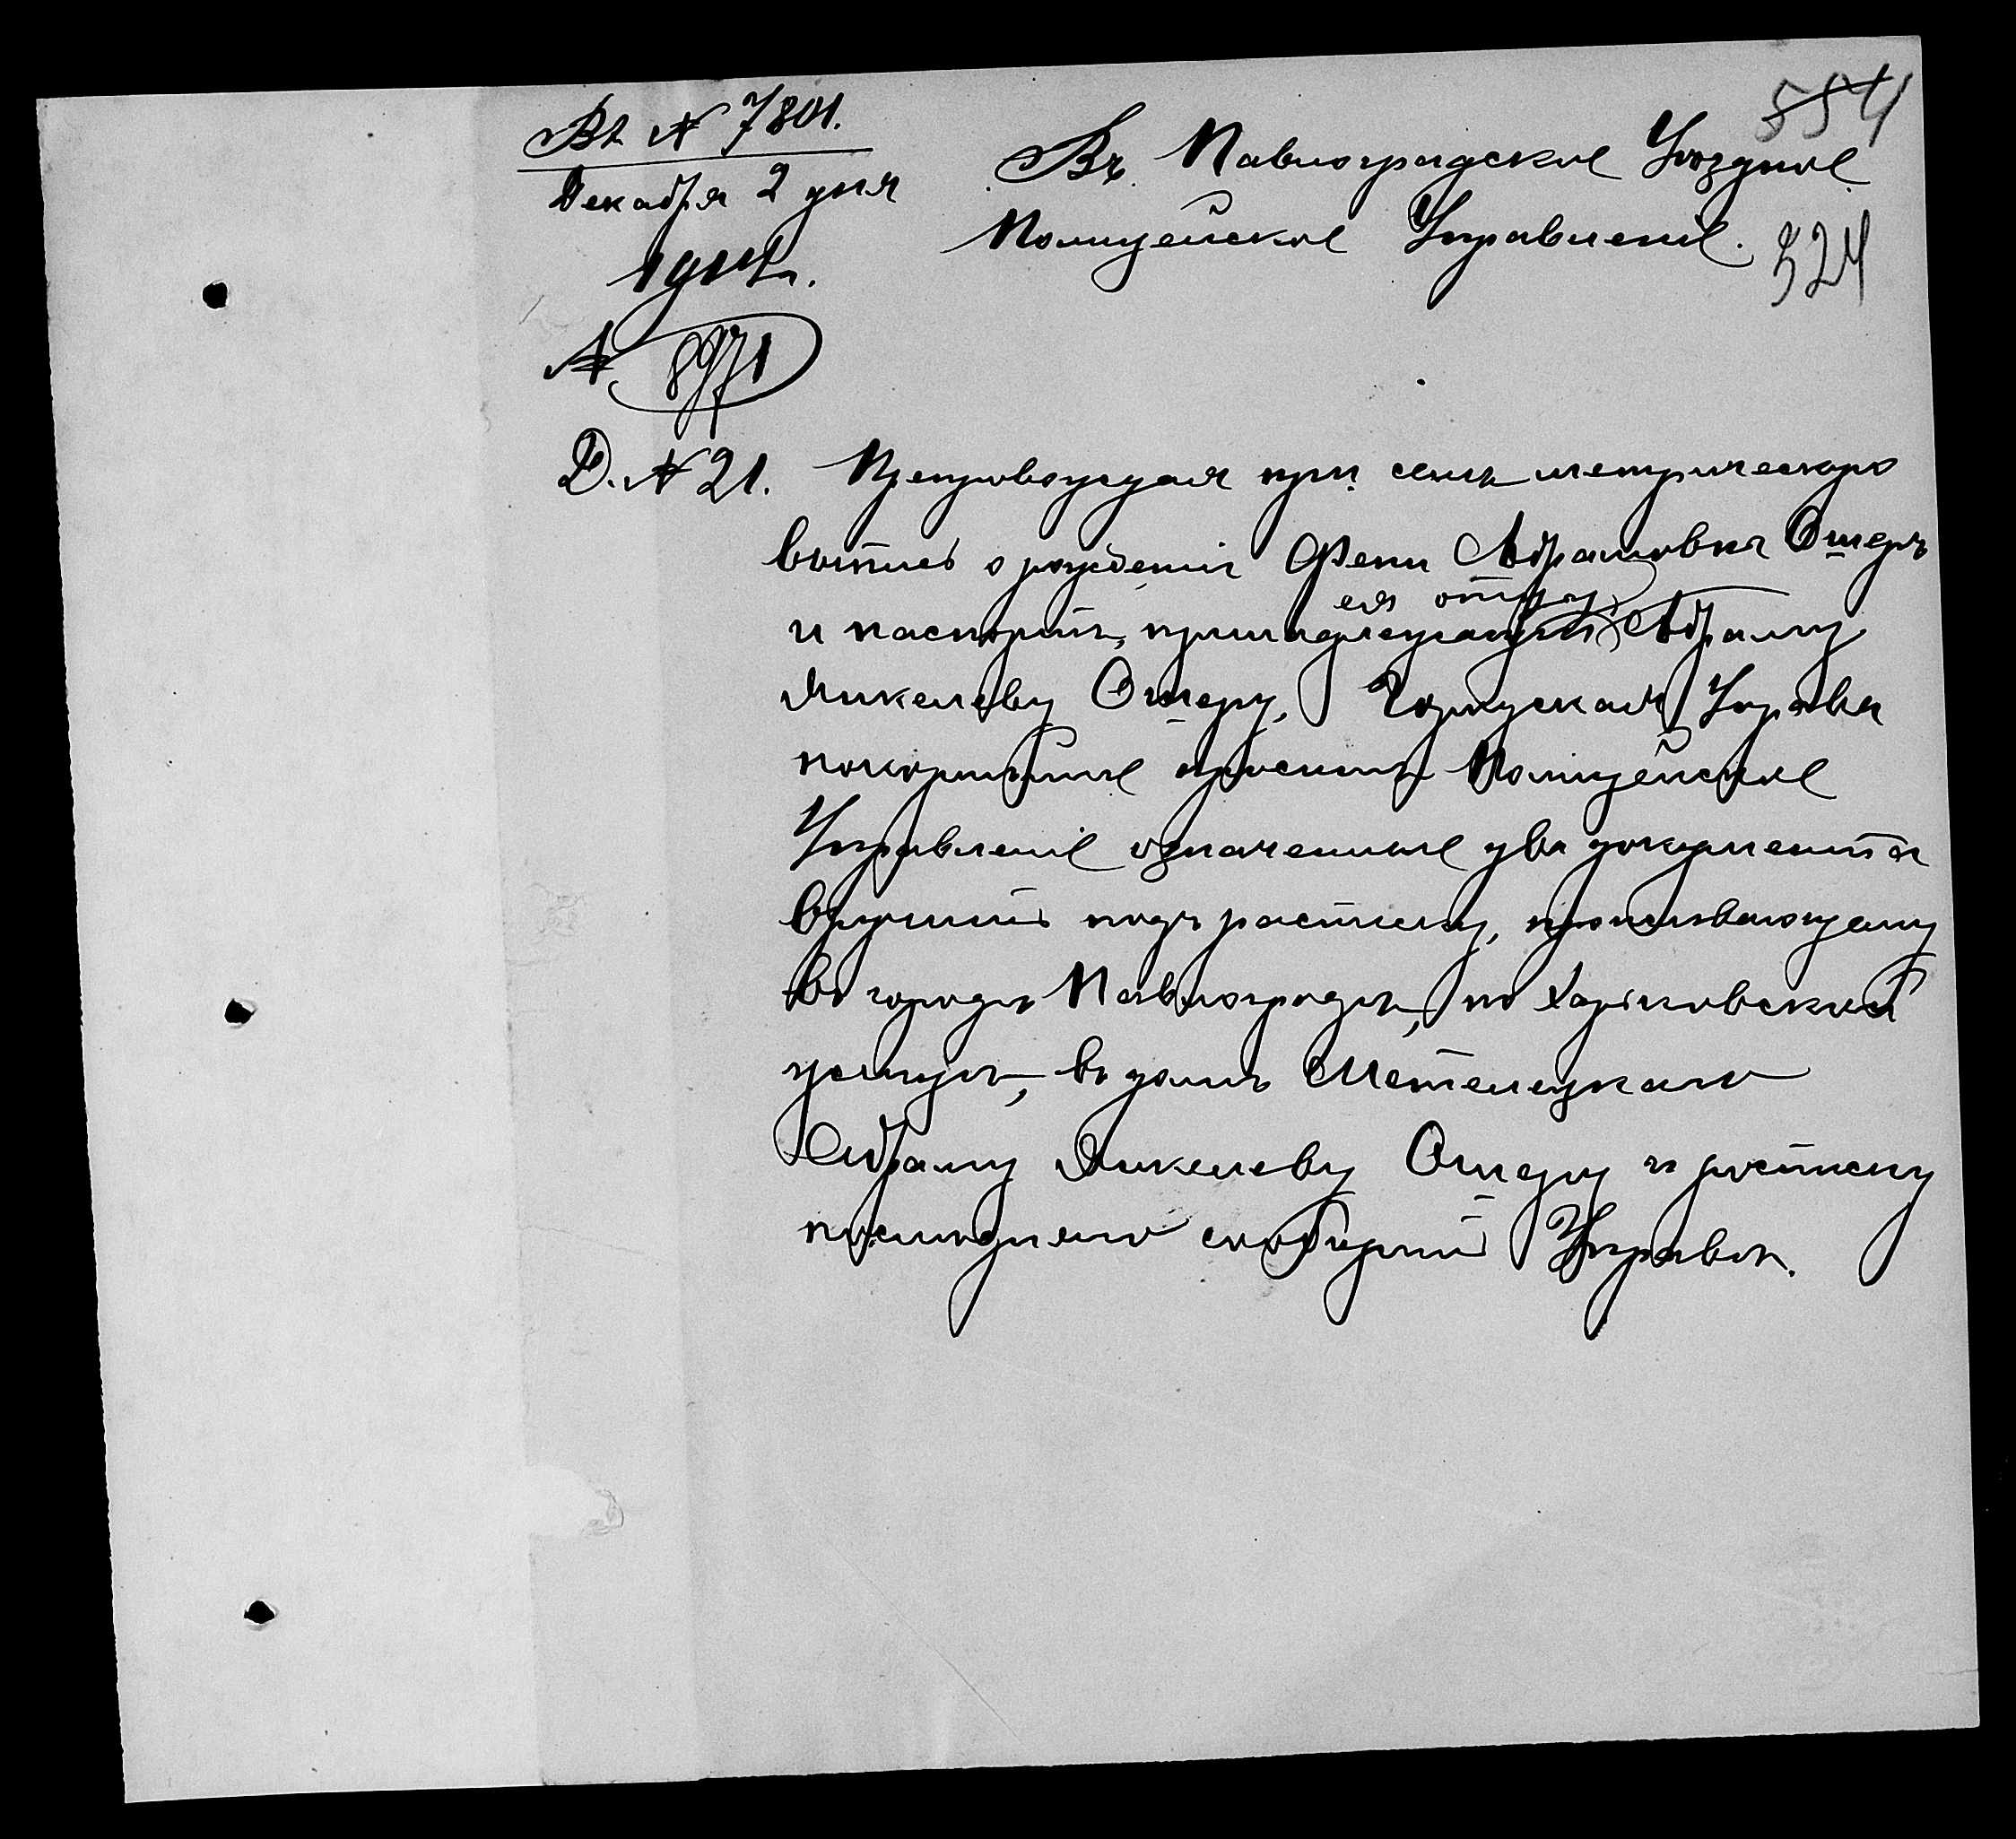 554
Вх № 7801.
Декабря 2 дня
1911 г.
№ 8971
Въ Павлоградское Уѣздное
Полицейское Управленіе.
324
Д. № 21. Препровождая при семъ метрическую
выпись о рожденіи Фени Абрамовны Ошеръ
ея отцу
и паспортъ, принадлежащій Абраму
Янкелеву Ошеру, Городская Управа
покорнѣйше проситъ Полицейское
Управленіе означенные два документа
вручить подъ расписку, проживающему
въ городѣ Павлоградѣ, по Харьковской
улицѣ, въ домѣ Метелецкаго
Абраму Янкелеву Ошеру и росписку
послѣдняго сообщить Управѣ.